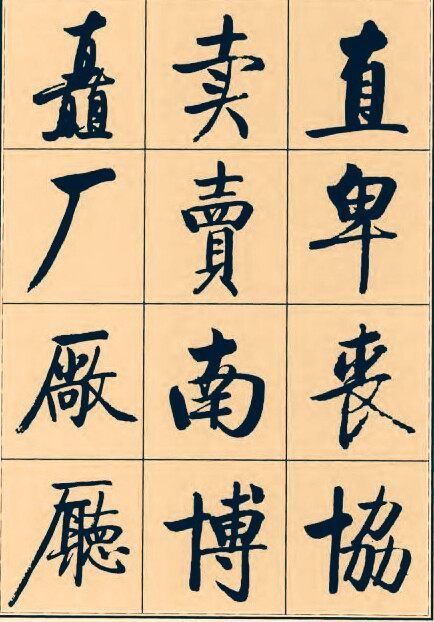 直卑喪協
卖賣南博
矗厂厰廳